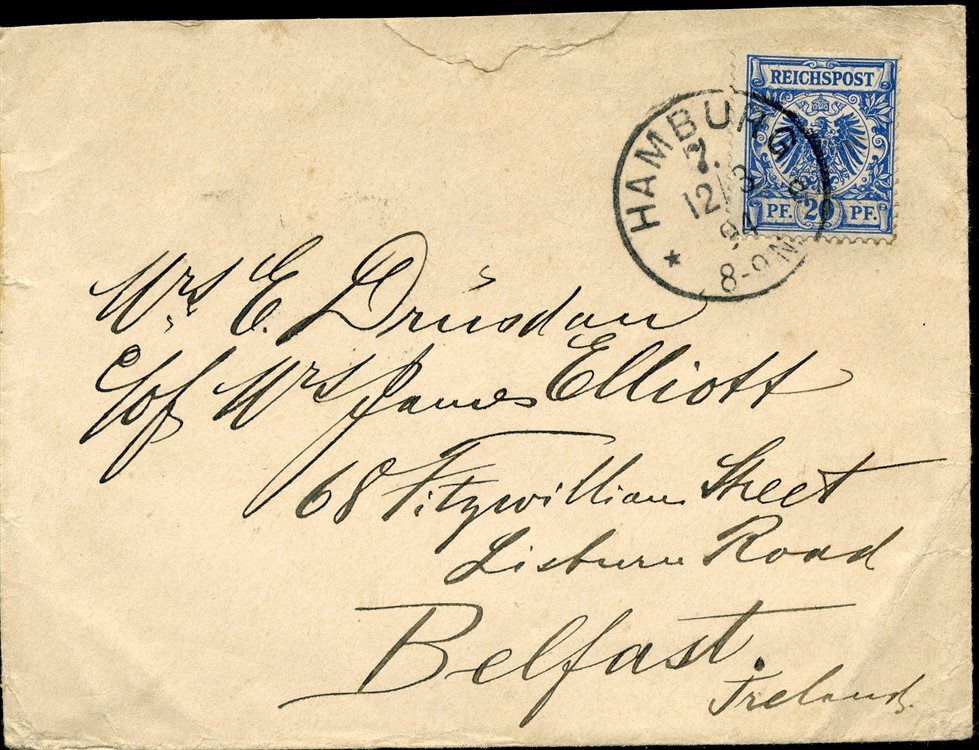 REICHSPOST
PF. 20 PF.
* HAMBURG
7.
12/3
94
8-9N
Mrs E. Drüsdau
c/of Mrs James Elliott
68 Fitzwilliam Street
Lisburn Road
Belfast.
Ireland.